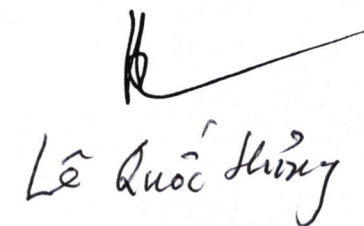 Lê Quốc Hưng